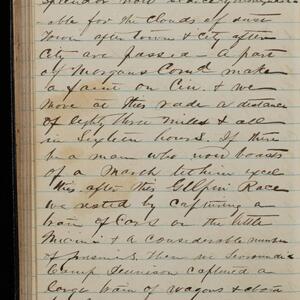 splendor now
able for the clouds of dust
Town after town & City after
City are passed. A part
of Morgans Comd make
a faint on Cin. & we
move at this rade a distance
of eighty three miles & all
in Sixteen hours. If there
be a man who now boasts
of a March let him excel
this. after this Gillpin Race
we rested by capturing a
train of Cars on the little
Miami & a considerable number
of prisnirs. Then we
Camp Dennison captured a
large train of wagons & about